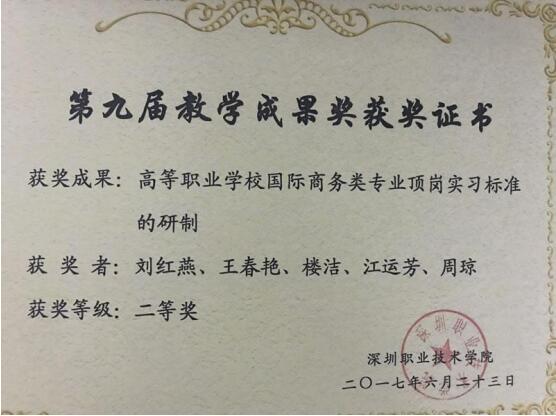 第九届教学成果奖获奖证书
获奖成果：高等职业学校国际商务类专业顶岗实习标准
的研制
获 奖 者：刘红燕、王春艳、楼洁、江运芳、周琼
获奖等级：二等奖
深圳职业技术学院
二〇一七年六月二十三日